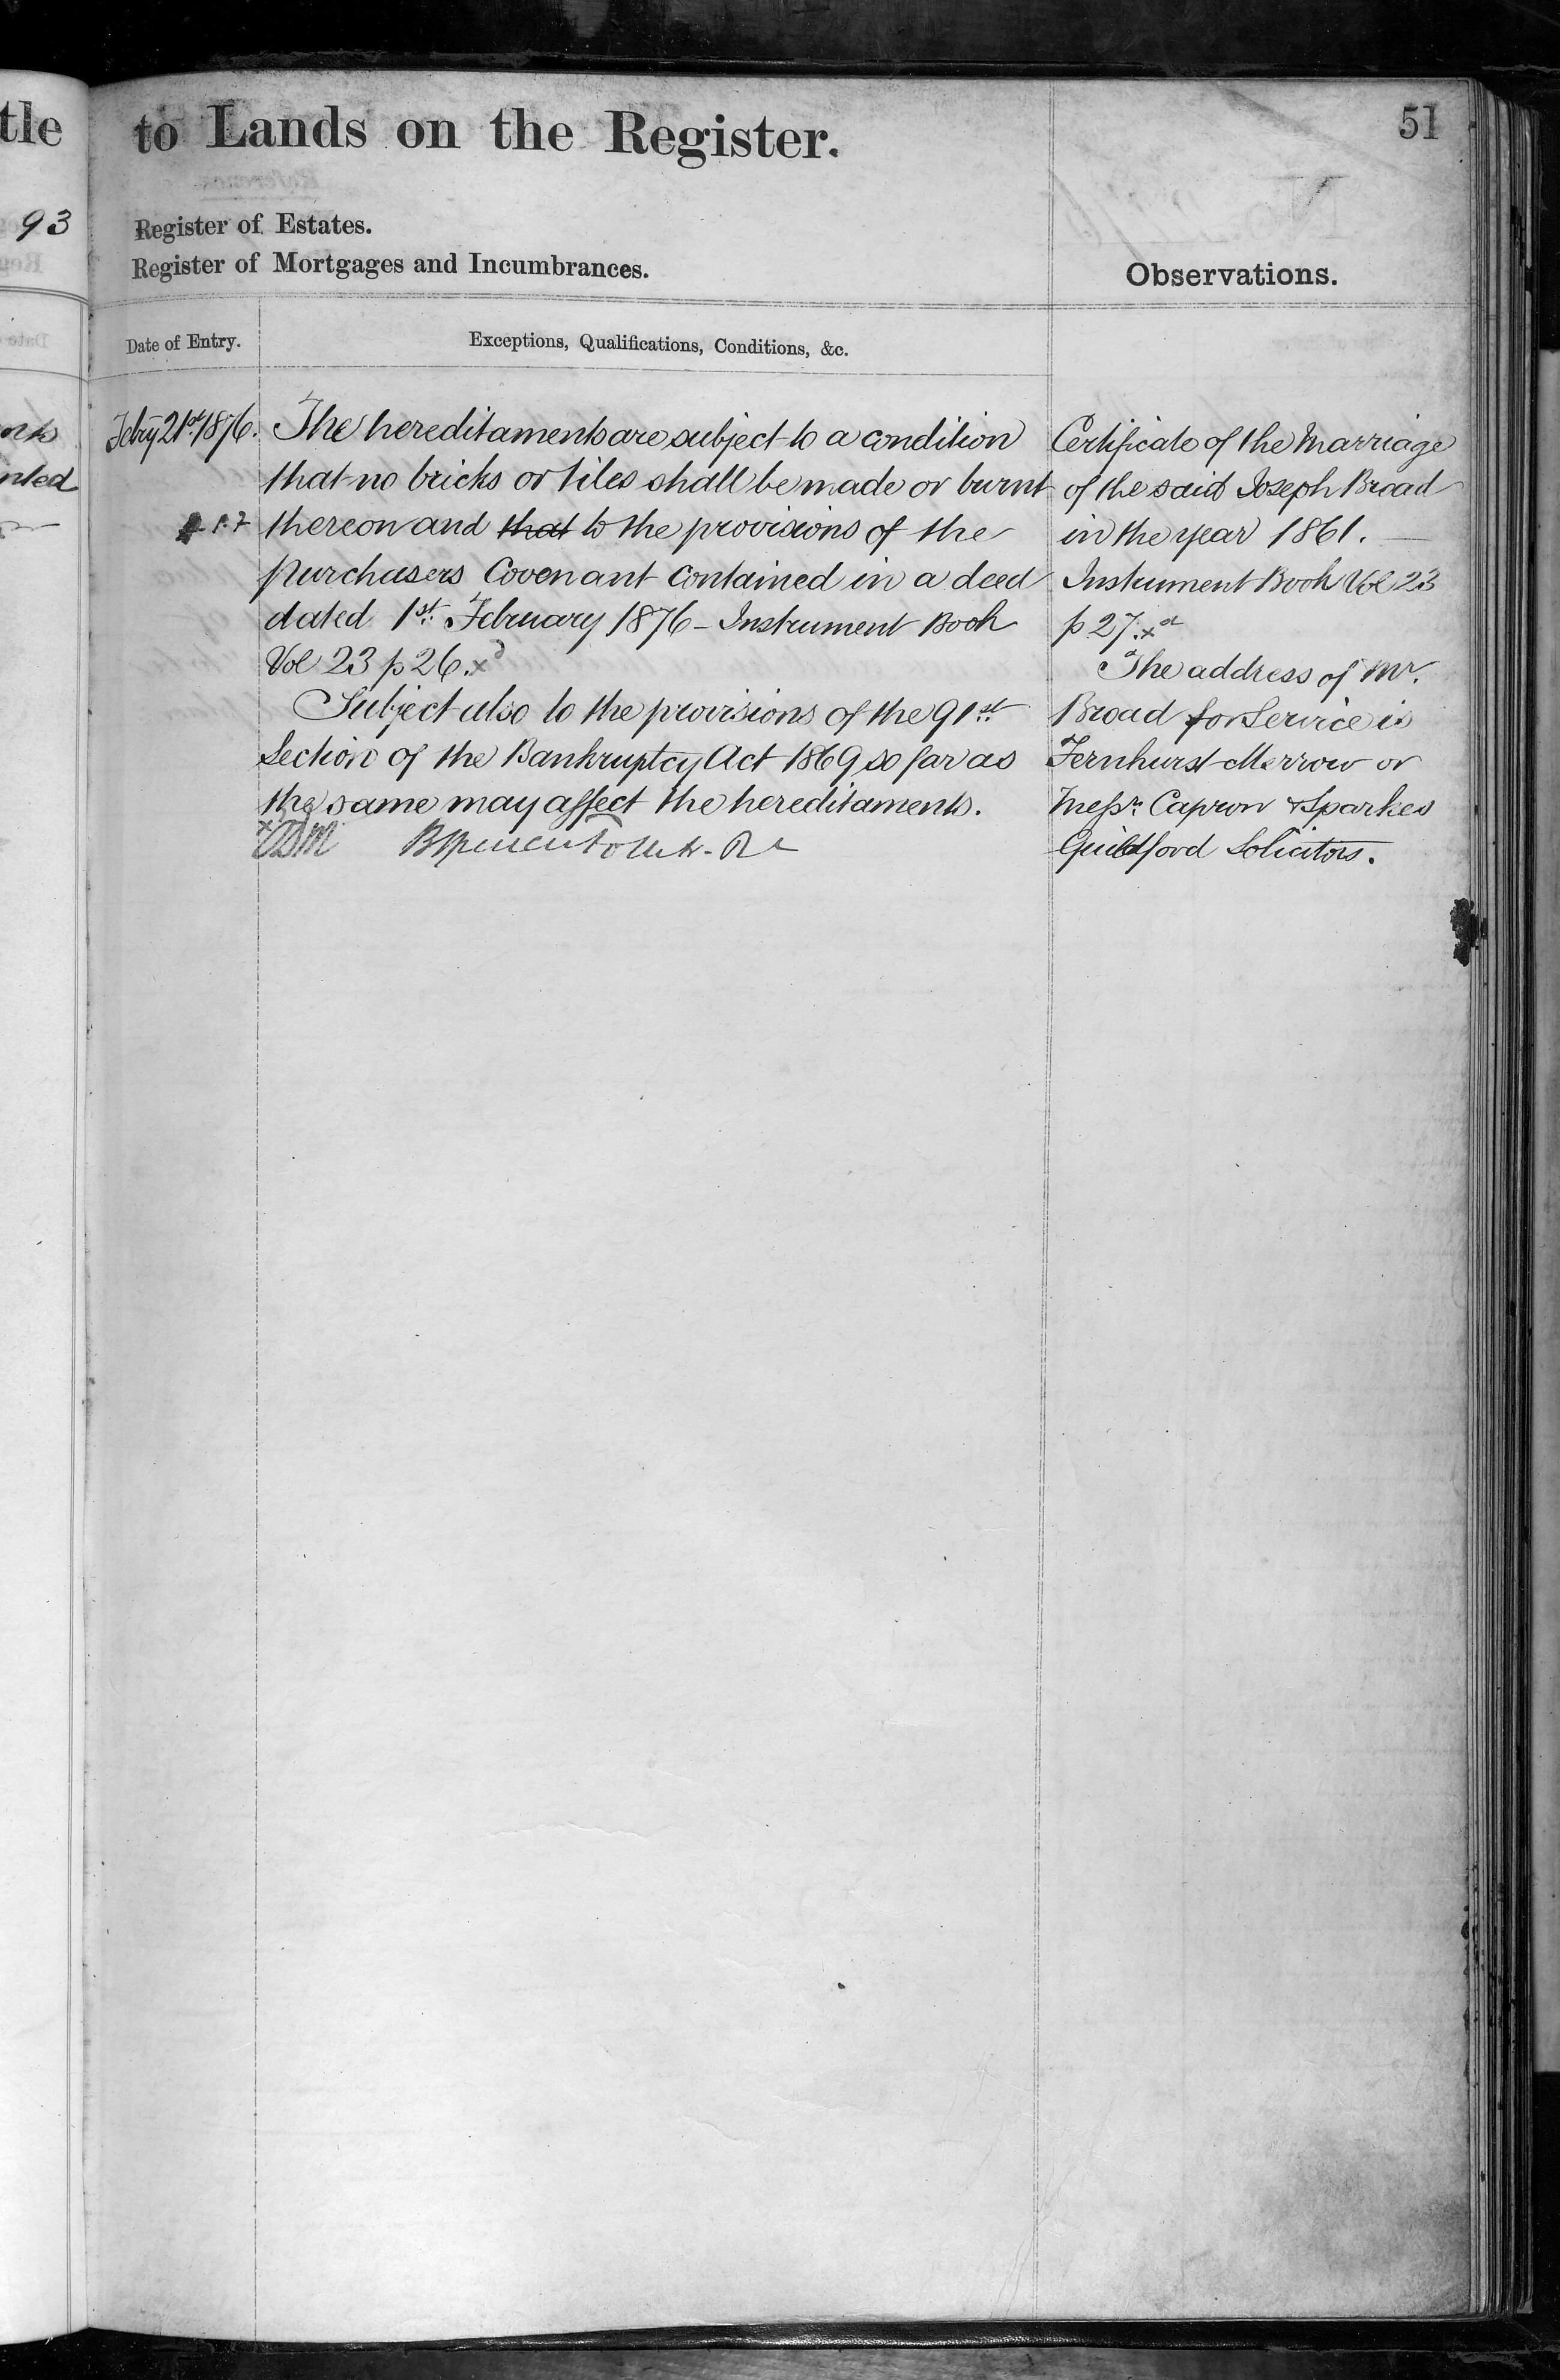 tle
93
nted
to Lands on the Register.
51
Register of Estates.
Register of Mortgages and Incumbrances.
Observations.
Date of Entry.
Exceptions, Qualifications, Conditions, &c.
Febry 21st 1876.
The hereditaments are subject to a condition
that no bricks or tiles shall be made or burnt
thereon and that to the provisions of the
purchasers Covenant contained in a deed
dated 1st February 1876 - Instrument Book
Vol 23 p 26.
Subject also to the provisions of the 91st
Section of the Bankruptcy Act 1869 so far as
the same may affect the hereditaments.
Certificate of the Marriage
of the said Joseph Broad
in the year 1861.
Instrument Book Vol 23
p 27.
The address of Mr.
Broad for Service is
Fernhurst Merrow or
Messrs Capron & Sparkes
Guildford Solicitors.